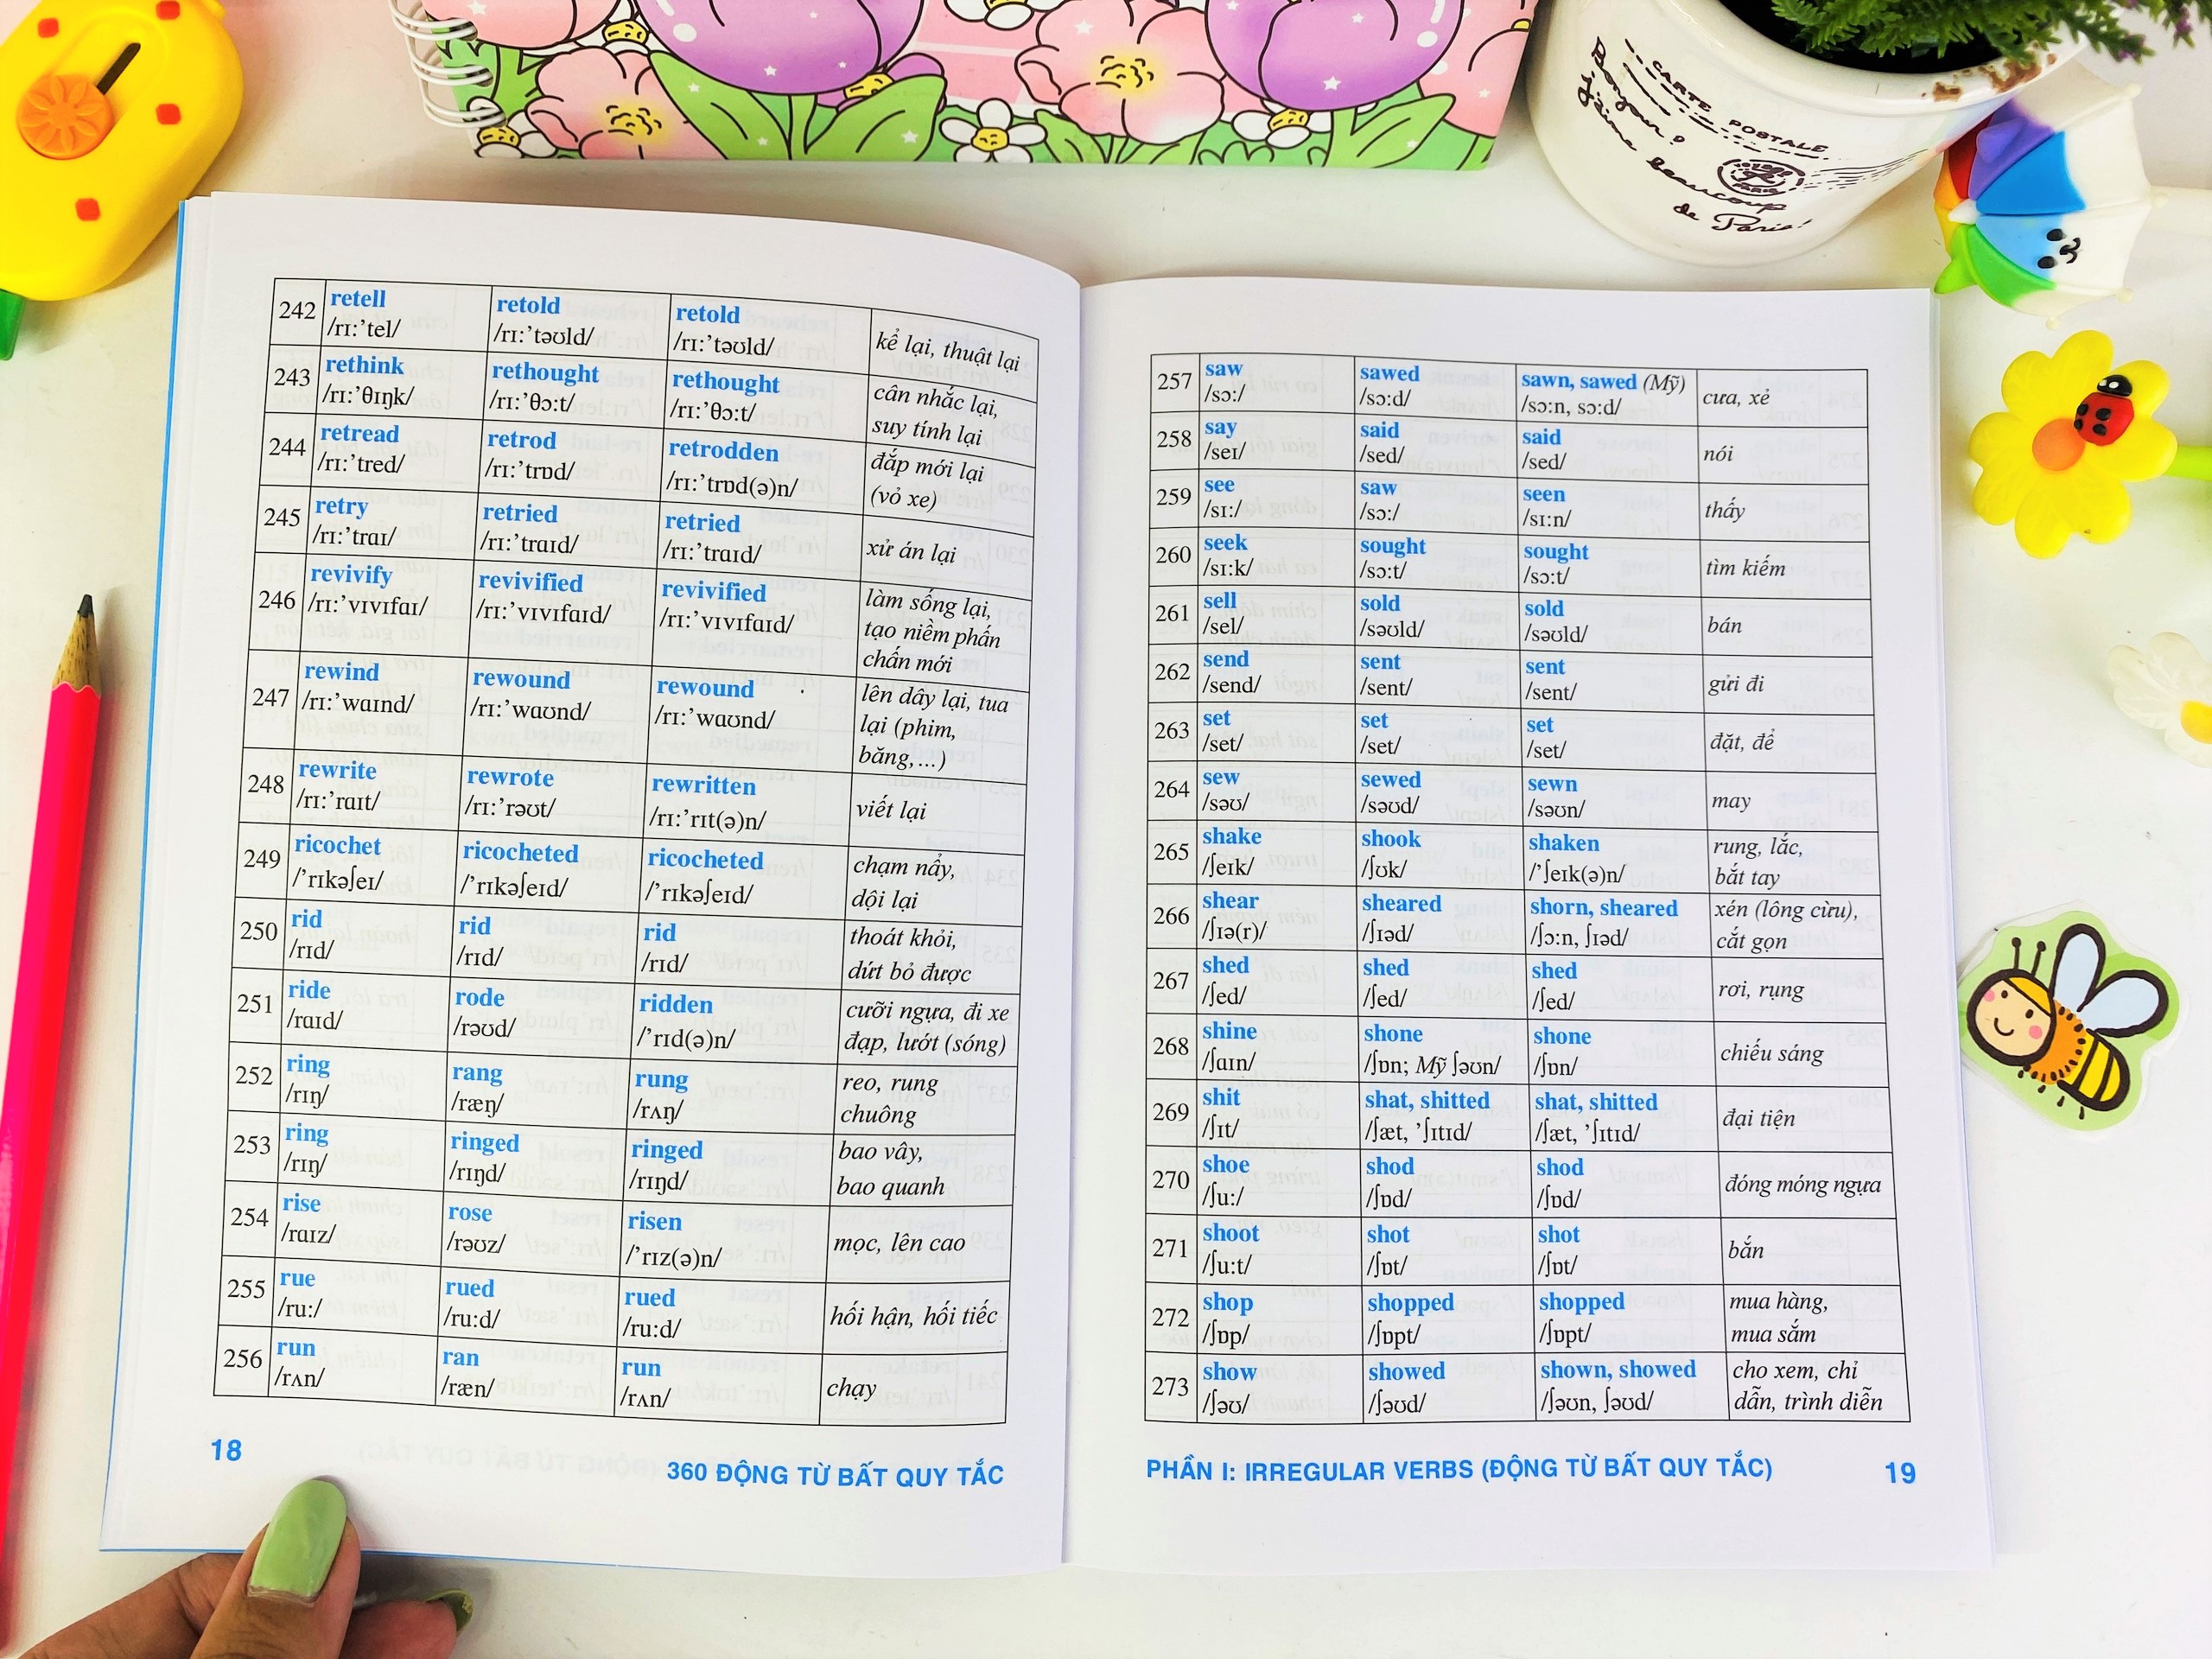 CARTE
POSTALE
Bonjour?
j'aime beaucoup
de Paris!
242 retell retold retold kể lại, thuật lại
/rɪ:’tel/ /rɪ:’təʊld/ /rɪ:’təʊld/
243 rethink rethought rethought cân nhắc lại,
/rɪ:’θɪŋk/ /rɪ:’θɔ:t/ /rɪ:’θɔ:t/ suy tính lại
244 retread retrod retrodden đắp mới lại
/rɪ:’tred/ /rɪ:’trɒd/ /rɪ:’trɒd(ə)n/ (vỏ xe)
245 retry retried retried xử án lại
/rɪ:’traɪ/ /rɪ:’traɪd/ /rɪ:’traɪd/
246 revivify revivified revivified làm sống lại,
/rɪ:’vɪvɪfaɪ/ /rɪ:’vɪvɪfaɪd/ /rɪ:’vɪvɪfaɪd/ tạo niềm phấn
chấn mới
247 rewind rewound rewound lên dây lại, tua
/rɪ:’waɪnd/ /rɪ:’waʊnd/ /rɪ:’waʊnd/ lại (phim,
băng,...)
248 rewrite rewrote rewritten viết lại
/rɪ:’raɪt/ /rɪ:’rəʊt/ /rɪ:’rɪt(ə)n/
249 ricochet ricocheted ricocheted chạm nẩy,
/’rɪkəʃeɪ/ /’rɪkəʃeɪd/ /’rɪkəʃeɪd/ dội lại
250 rid rid rid thoát khỏi,
/rɪd/ /rɪd/ /rɪd/ dứt bỏ được
251 ride rode ridden cưỡi ngựa, đi xe
/raɪd/ /rəʊd/ /’rɪd(ə)n/ đạp, lướt (sóng)
252 ring rang rung reo, rung
/rɪŋ/ /ræŋ/ /rʌŋ/ chuông
253 ring ringed ringed bao vây,
/rɪŋ/ /rɪŋd/ /rɪŋd/ bao quanh
254 rise rose risen mọc, lên cao
/raɪz/ /rəʊz/ /’rɪz(ə)n/
255 rue rued rued hối hận, hối tiếc
/ru:/ /ru:d/ /ru:d/
256 run ran run chạy
/rʌn/ /ræn/ /rʌn/
18 360 ĐỘNG TỪ BẤT QUY TẮC
257 saw sawed sawn, sawed (Mỹ) cưa, xẻ
/sɔ:/ /sɔ:d/ /sɔ:n, sɔ:d/
258 say said said nói
/seɪ/ /sed/ /sed/
259 see saw seen thấy
/sɪ:/ /sɔ:/ /sɪ:n/
260 seek sought sought tìm kiếm
/sɪ:k/ /sɔ:t/ /sɔ:t/
261 sell sold sold bán
/sel/ /səʊld/ /səʊld/
262 send sent sent gửi đi
/send/ /sent/ /sent/
263 set set set đặt, để
/set/ /set/ /set/
264 sew sewed sewn may
/səʊ/ /səʊd/ /səʊn/
265 shake shook shaken rung, lắc,
/ʃeɪk/ /ʃʊk/ /’ʃeɪk(ə)n/ bắt tay
266 shear sheared shorn, sheared xén (lông cừu),
/ʃɪə(r)/ /ʃɪəd/ /ʃɔ:n, ʃɪəd/ cắt gọn
267 shed shed shed rơi, rụng
/ʃed/ /ʃed/ /ʃed/
268 shine shone shone chiếu sáng
/ʃaɪn/ /ʃɒn; Mỹ ʃəʊn/ /ʃɒn/
269 shit shat, shitted shat, shitted đại tiện
/ʃɪt/ /ʃæt, ’ʃɪtɪd/ /ʃæt, ’ʃɪtɪd/
270 shoe shod shod đóng móng ngựa
/ʃu:/ /ʃɒd/ /ʃɒd/
271 shoot shot shot bắn
/ʃu:t/ /ʃɒt/ /ʃɒt/
272 shop shopped shopped mua hàng,
/ʃɒp/ /ʃɒpt/ /ʃɒpt/ mua sắm
273 show showed shown, showed cho xem, chỉ
/ʃəʊ/ /ʃəʊd/ /ʃəʊn, ʃəʊd/ dẫn, trình diễn
PHẦN I: IRREGULAR VERBS (ĐỘNG TỪ BẤT QUY TẮC) 19